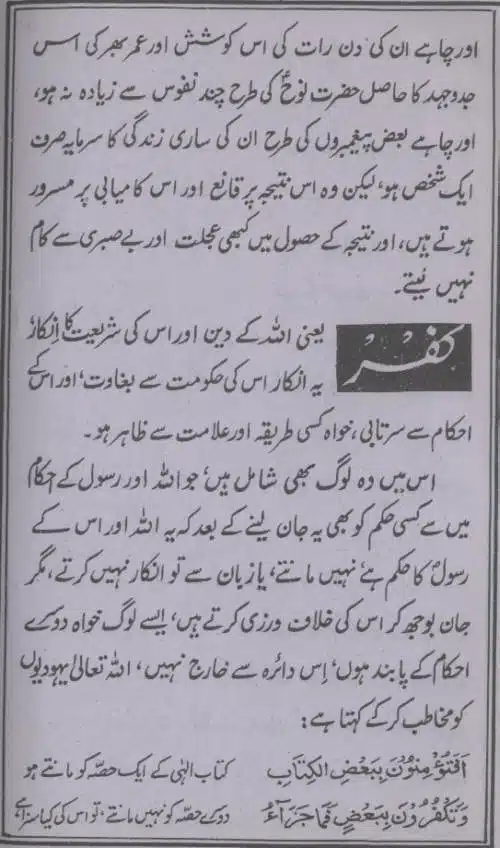 اور چاہے ان کی دن رات کی اس کوشش اور عمر بھر کی اس
جدوجہد کا حاصل حضرت نوحؑ کی طرح چند نفوس سے زیادہ نہ ہو،
اور چاہے بعض پیغمبروں کی طرح ان کی ساری زندگی کا سرمایہ صرف
ایک شخص ہو، لیکن وہ اس نتیجہ پر قانع اور اس کامیابی پر مسرور
ہوتے ہیں، اور نتیجہ کے حصول میں کبھی عجلت اور بے صبری سے کام
نہیں لیتے۔
کفر
یعنی اللہ کے دین اور اس کی شریعت کا انکار،
یہ انکار اس کی حکومت سے بغاوت، اور اس کے
احکام سے سرتابی، خواہ کسی طریقہ اور علامت سے ظاہر ہو۔
اس میں وہ لوگ بھی شامل ہیں، جو اللہ اور رسول کے احکام
میں سے کسی حکم کو بھی یہ جان لینے کے بعد کہ یہ اللہ اور اس کے
رسولؐ کا حکم ہے، نہیں مانتے، یا زبان سے تو انکار نہیں کرتے، مگر
جان بوجھ کر اس کی خلاف ورزی کرتے ہیں، ایسے لوگ خواہ دوسرے
احکام کے پابند ہوں، اِس دائرہ سے خارج نہیں، اللہ تعالیٰ یہودیوں
کو مخاطب کرکے کہتا ہے:
اَفَتُؤْمِنُونَ بِبَعْضِ الْكِتَابِ کتاب الٰہی کے ایک حصّہ کو مانتے ہو
وَتَكْفُرُونَ بِبَعْضٍ فَمَا جَزَآءُ دوسرے حصّہ کو نہیں مانتے، تو اس کی کیا سزا ہے